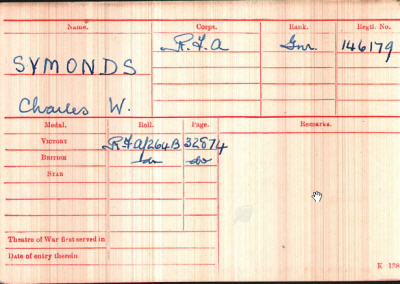 Name. Corps. Rank. Regtl. No.
R.F.A Gnr. 146179
SYMONDS
Charles W.
Medal. Roll. Page. Remarks.
VICTORY RFA/264B 32874
BRITISH do do
STAR
Theatre of War first served in
Date of entry therein
K 138